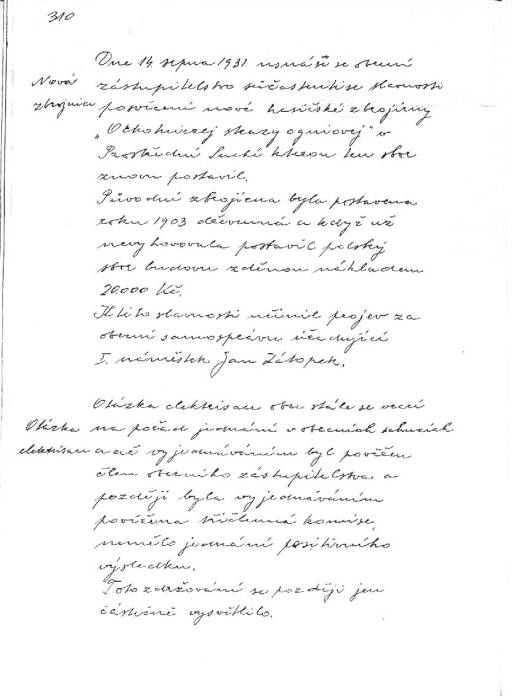 310
Dne 14. srpna 1931 usnáší se obecní
Nová
zbrojnice
zástupitelstvo súčastniti se slavnosti
posvěcení nové hasičské zbrojnny
„Ochotniczej straży ogniowej" v
Prostřední Suché kterou ten sbor
znovu postavil.
Původní zbrojnna byla postavena
roku 1903 dřevenná a když už
nevyhovovala postavil polský
sbor budovu zděnou nákladem
20.000 Kč.
K této slavnosti učinil projev za
obecní samosprávu úřadující
I. náměstek Jan Zátopek.
Otázka elektrisace obce stále se vrací
Otázka
elektrisace
na pořad jednání v obecních schůzích
a ač vyjednáváním byl pověřen
člen obecního zástupitelstva a
později byla vyjednáváním
pověřena tříčlenná komise,
nemělo jednání positivního
výsledku.
Toto zdržování se později jen
částečně vysvětlilo.